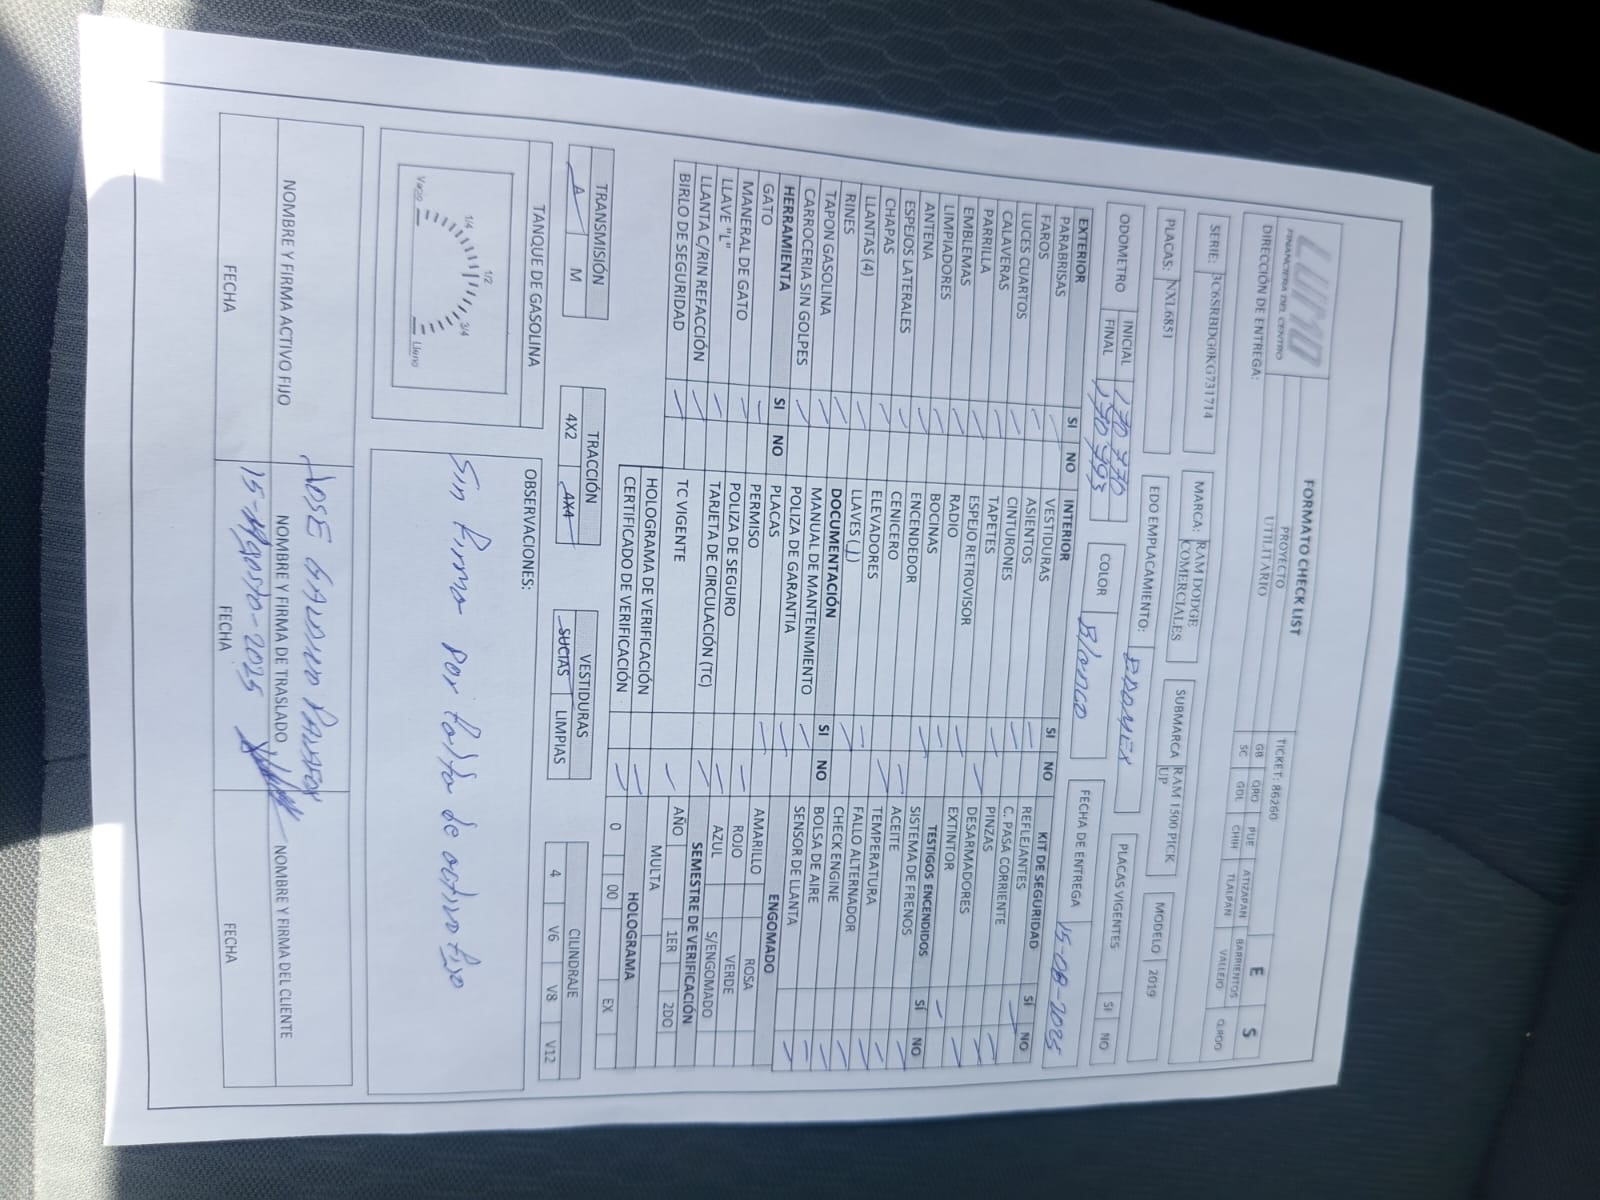 LUMO
FINANCIERA DEL CENTRO
FORMATO CHECK LIST
PROYECTO
UTILITARIO
TICKET: 86260
E S
DIRECCIÓN DE ENTREGA:
GB QRO PUE ATIZAPAN BARRIENTOS Q.ROO
SC GDL CHIH TLALPAN VALLEJO
SERIE: 3C6SRBDG0KG731714
MARCA: RAM DODGE COMERCIALES
SUBMARCA RAM 1500 PICK UP
MODELO 2019
PLACAS: NXL6851
EDO EMPLACAMIENTO: EDOMEX
PLACAS VIGENTES SI NO
ODOMETRO INICIAL 170 770
FINAL 170 793
COLOR Blanco
FECHA DE ENTREGA 15-08-2025
EXTERIOR SI NO INTERIOR SI NO KIT DE SEGURIDAD SÍ NO
PARABRISAS VESTIDURAS REFLEJANTES
FAROS ASIENTOS C. PASA CORRIENTE
LUCES CUARTOS CINTURONES PINZAS
CALAVERAS TAPETES DESARMADORES
PARRILLA ESPEJO RETROVISOR EXTINTOR
EMBLEMAS RADIO TESTIGOS ENCENDIDOS SÍ NO
LIMPIADORES BOCINAS SISTEMA DE FRENOS
ANTENA ENCENDEDOR ACEITE
ESPEJOS LATERALES CENICERO TEMPERATURA
CHAPAS ELEVADORES FALLO ALTERNADOR
LLANTAS (4) LLAVES (1) CHECK ENGINE
RINES DOCUMENTACIÓN SI NO BOLSA DE AIRE
TAPON GASOLINA MANUAL DE MANTENIMIENTO SENSOR DE LLANTA
CARROCERIA SIN GOLPES POLIZA DE GARANTIA ENGOMADO
HERRAMIENTA SI NO PLACAS AMARILLO ROSA
GATO PERMISO ROJO VERDE
MANERAL DE GATO POLIZA DE SEGURO AZUL S/ENGOMADO
LLAVE "L" TARJETA DE CIRCULACIÓN (TC) SEMESTRE DE VERIFICACIÓN
LLANTA C/RIN REFACCIÓN TC VIGENTE AÑO 1ER 2DO
BIRLO DE SEGURIDAD HOLOGRAMA DE VERIFICACIÓN MULTA
CERTIFICADO DE VERIFICACIÓN HOLOGRAMA
0 00 EX
TRANSMISIÓN TRACCIÓN VESTIDURAS CILINDRAJE
A M 4X2 4X4 SUCIAS LIMPIAS 4 V6 V8 V12
TANQUE DE GASOLINA OBSERVACIONES:
Vacio 1/4 1/2 3/4 Lleno
Sin firma por falta de activo fijo
JOSE GALDINO
NOMBRE Y FIRMA ACTIVO FIJO NOMBRE Y FIRMA DE TRASLADO NOMBRE Y FIRMA DEL CLIENTE
15-Agosto-2025
FECHA FECHA FECHA